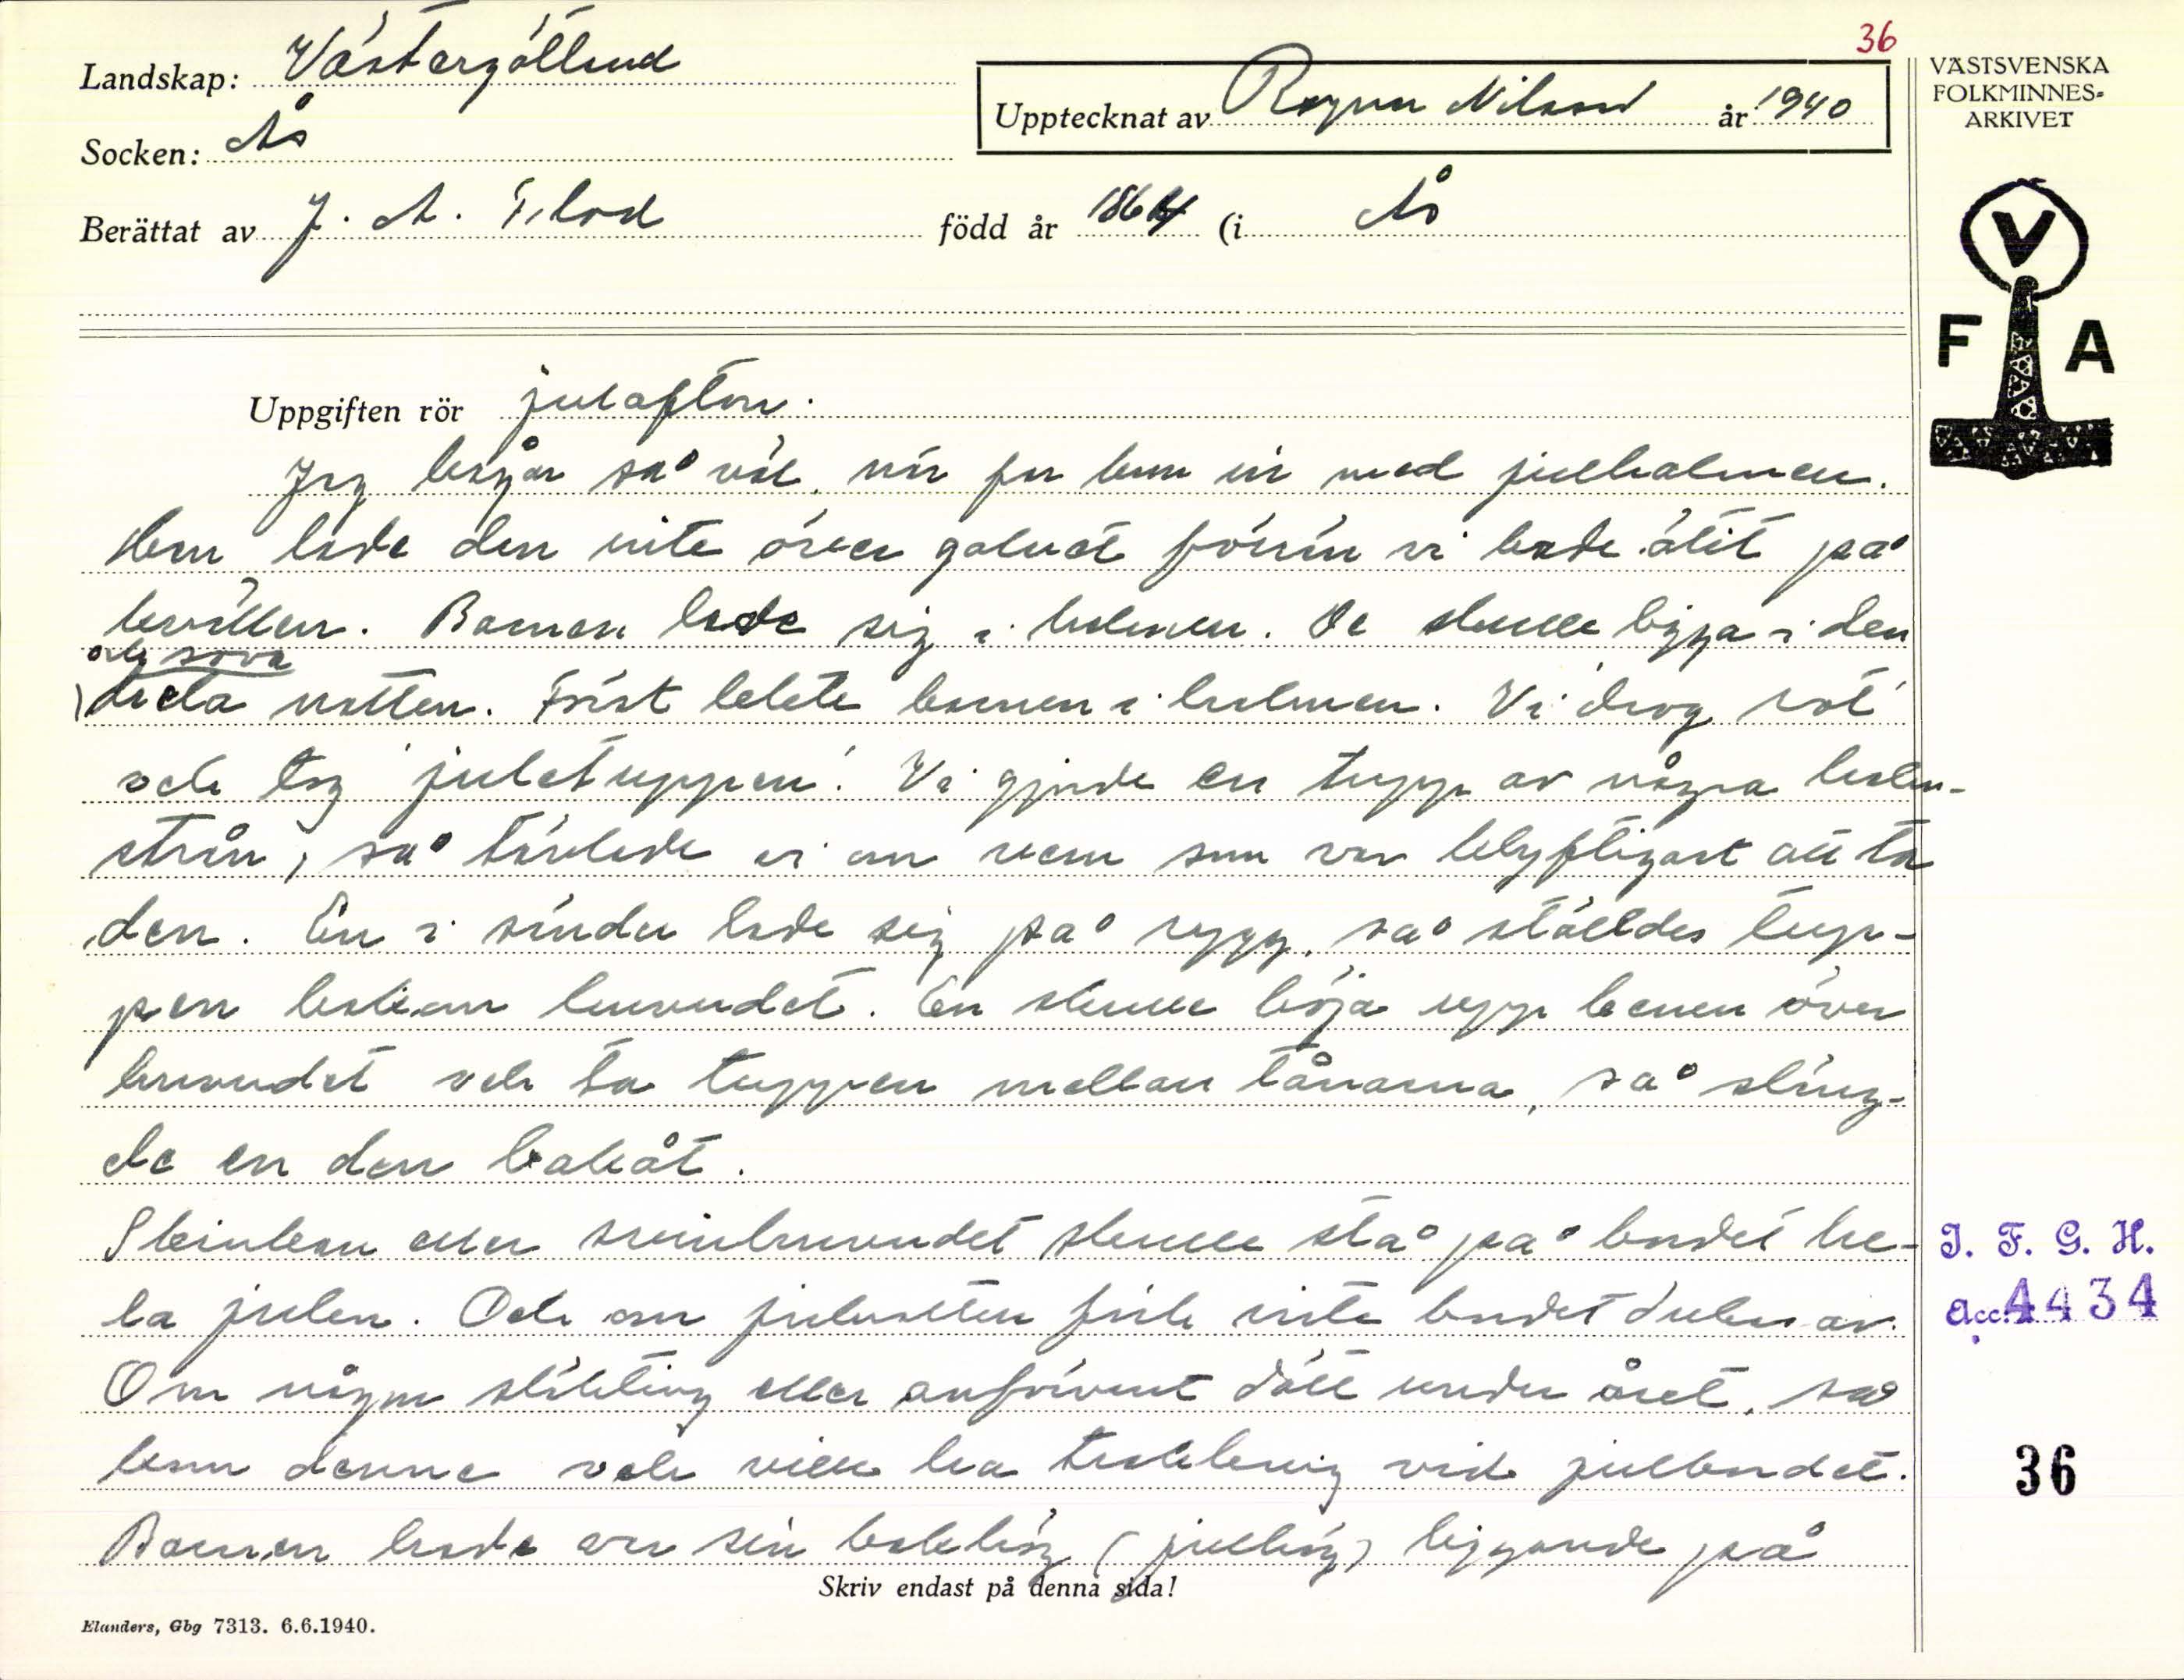 36
Landskap: Västergötland
Upptecknat av Ragnar Nilsson år 1940
VÄSTSVENSKA
FOLKMINNES-
ARKIVET
Socken: Ås
Berättat av J. A. Flod född år 1864 (i Ås
V
F A
Uppgiften rör julafton.
Jag så väl, när far kom in med julhalmen.
Han lade den inte över golvet förrän vi hade ätit på
kvällen. Barnen lade sig i halmen. De skulle ligga i den
och sova
hela natten. Först lekte barnen i halmen. Vi drog rot
och tog "juletuppen". Vi gjorde en tupp av några halm-
strån, så tävlade vi om vem som var klyftigast att ta
den. En i sänder lade sig på rygg, så ställdes tup-
pen bakom huvudet. En skulle böja upp benen över
huvudet och ta tuppen mellan tårna, så släng-
de en den bakåt.
Skinkan eller svinhuvudet skulle stå på bordet he-
la julen. Och om julnatten fick inte bordet dukas av.
Om någon släkting eller anförvant dött under året, så
kom denne och ville ha traktering vid julbordet.
Barnen hade var sin bakhög (julhög) liggande på
Skriv endast på denna sida!
Elanders, Gbg 7313. 6.6.1940.
I. F. G. H.
Acc. 4434
36